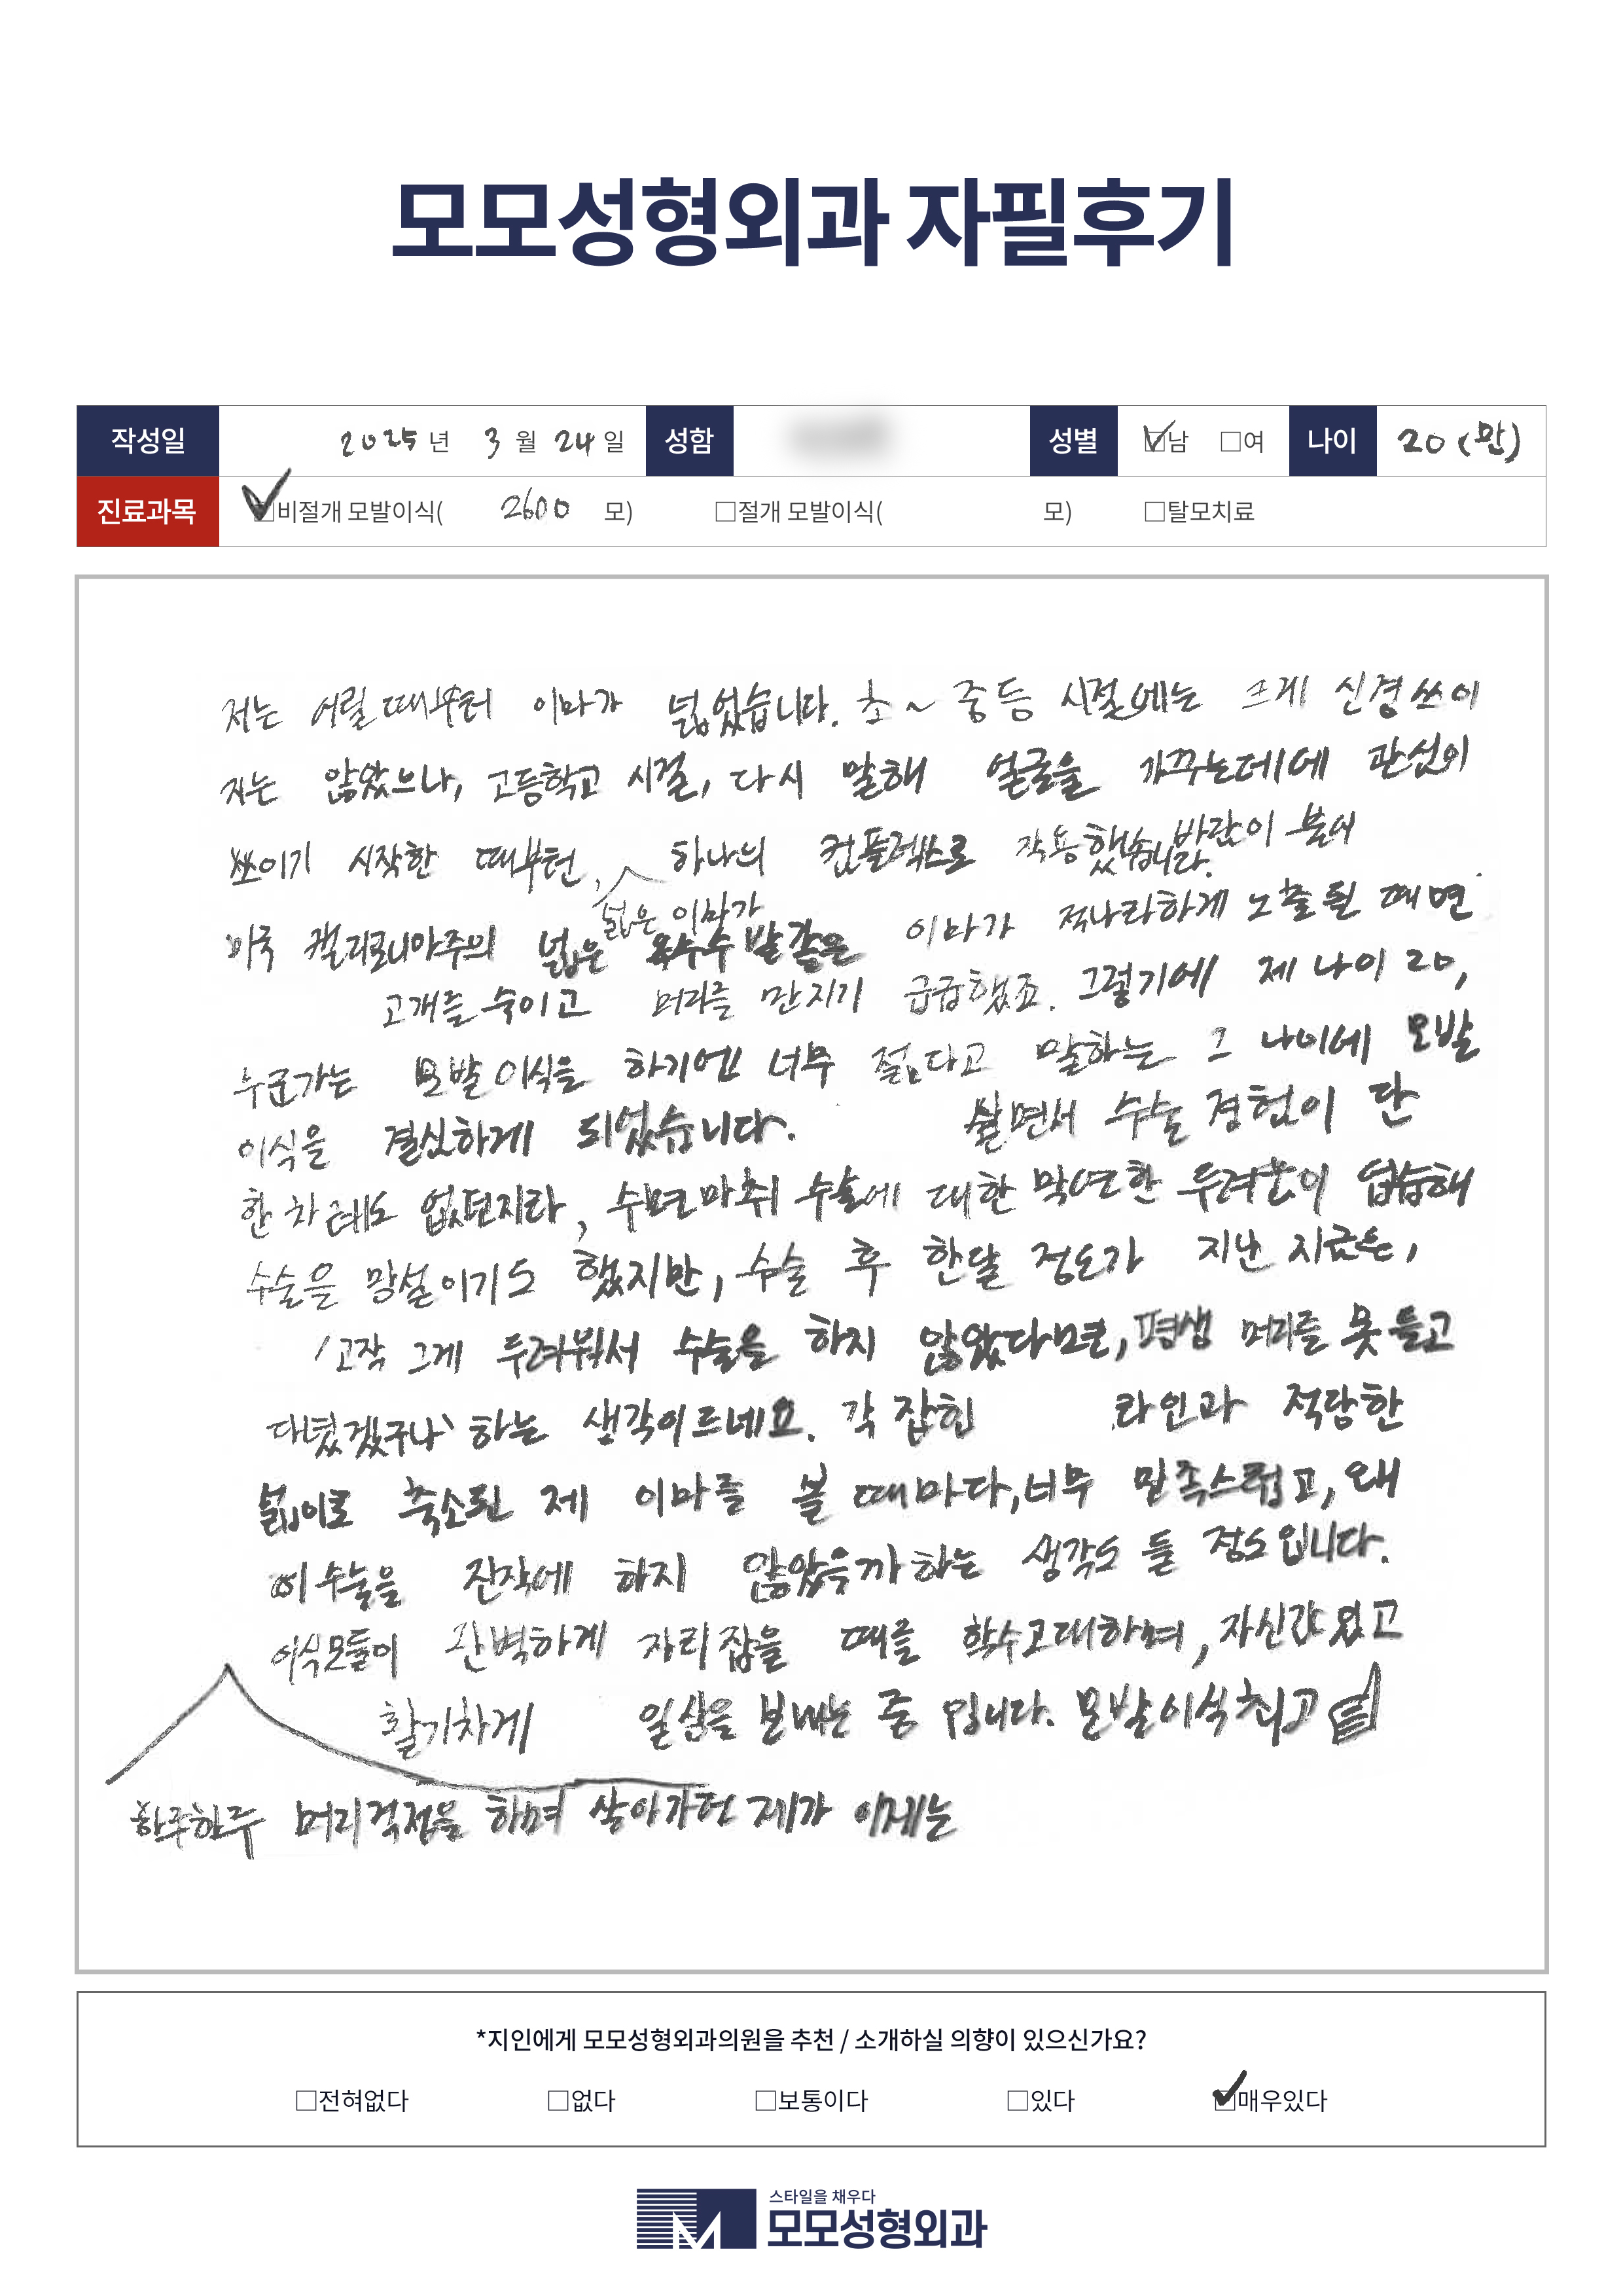 모모성형외과 자필후기
작성일 2025년 3월 24일 성함 성별 남 여 나이 20(만)
진료과목 비절개 모발이식( 2600 모) 절개 모발이식( 모) 탈모치료
저는 어릴때부터 이마가 넓었습니다. 초~중등 시절에는 크게 신경쓰이
지는 않았으나, 고등학교 시절, 다시 말해 얼굴을 가꾸는데에 관심이
쓰이기 시작한 때부턴, 하나의 컴플렉쓰로 작용했습니다. 바람이 불어
넓은 이마가
미국 캘리포니아주의 넓은 옥수수 밭같은 이마가 적나라하게 노출될 때면
고개를 숙이고 머리를 만지기 급급했죠. 그렇기에 제 나이 20,
누군가는 모발이식을 하기엔 너무 젊다고 말하는 그 나이에 모발
이식을 결심하게 되었습니다. 살면서 수술 경험이 단
한 차례도 없던지라, 수면마취 수술에 대한 막연한 두려움이 엄습해
수술을 망설이기도 했지만, 수술 후 한달 정도가 지난 지금은,
'고작 그게 두려워서 수술을 하지 않았다면, 평생 머리를 못 들고
다녔겠구나' 하는 생각이 드네요. 각 잡힌 라인과 적당한
넓이로 축소된 제 이마를 볼 때마다, 너무 만족스럽고, 왜
이 수술을 진작에 하지 않았을까 하는 생각도 들 정도입니다.
이식모들이 완벽하게 자리잡을 때를 학수고대하며, 자신감있고
활기차게 일상을 보내는 중 입니다. 모발이식 최고
하루하루 머리걱정을 하며 살아가던 제가 이제는
*지인에게 모모성형외과의원을 추천 / 소개하실 의향이 있으신가요?
전혀없다 없다 보통이다 있다 매우있다
스타일을 채우다
모모성형외과